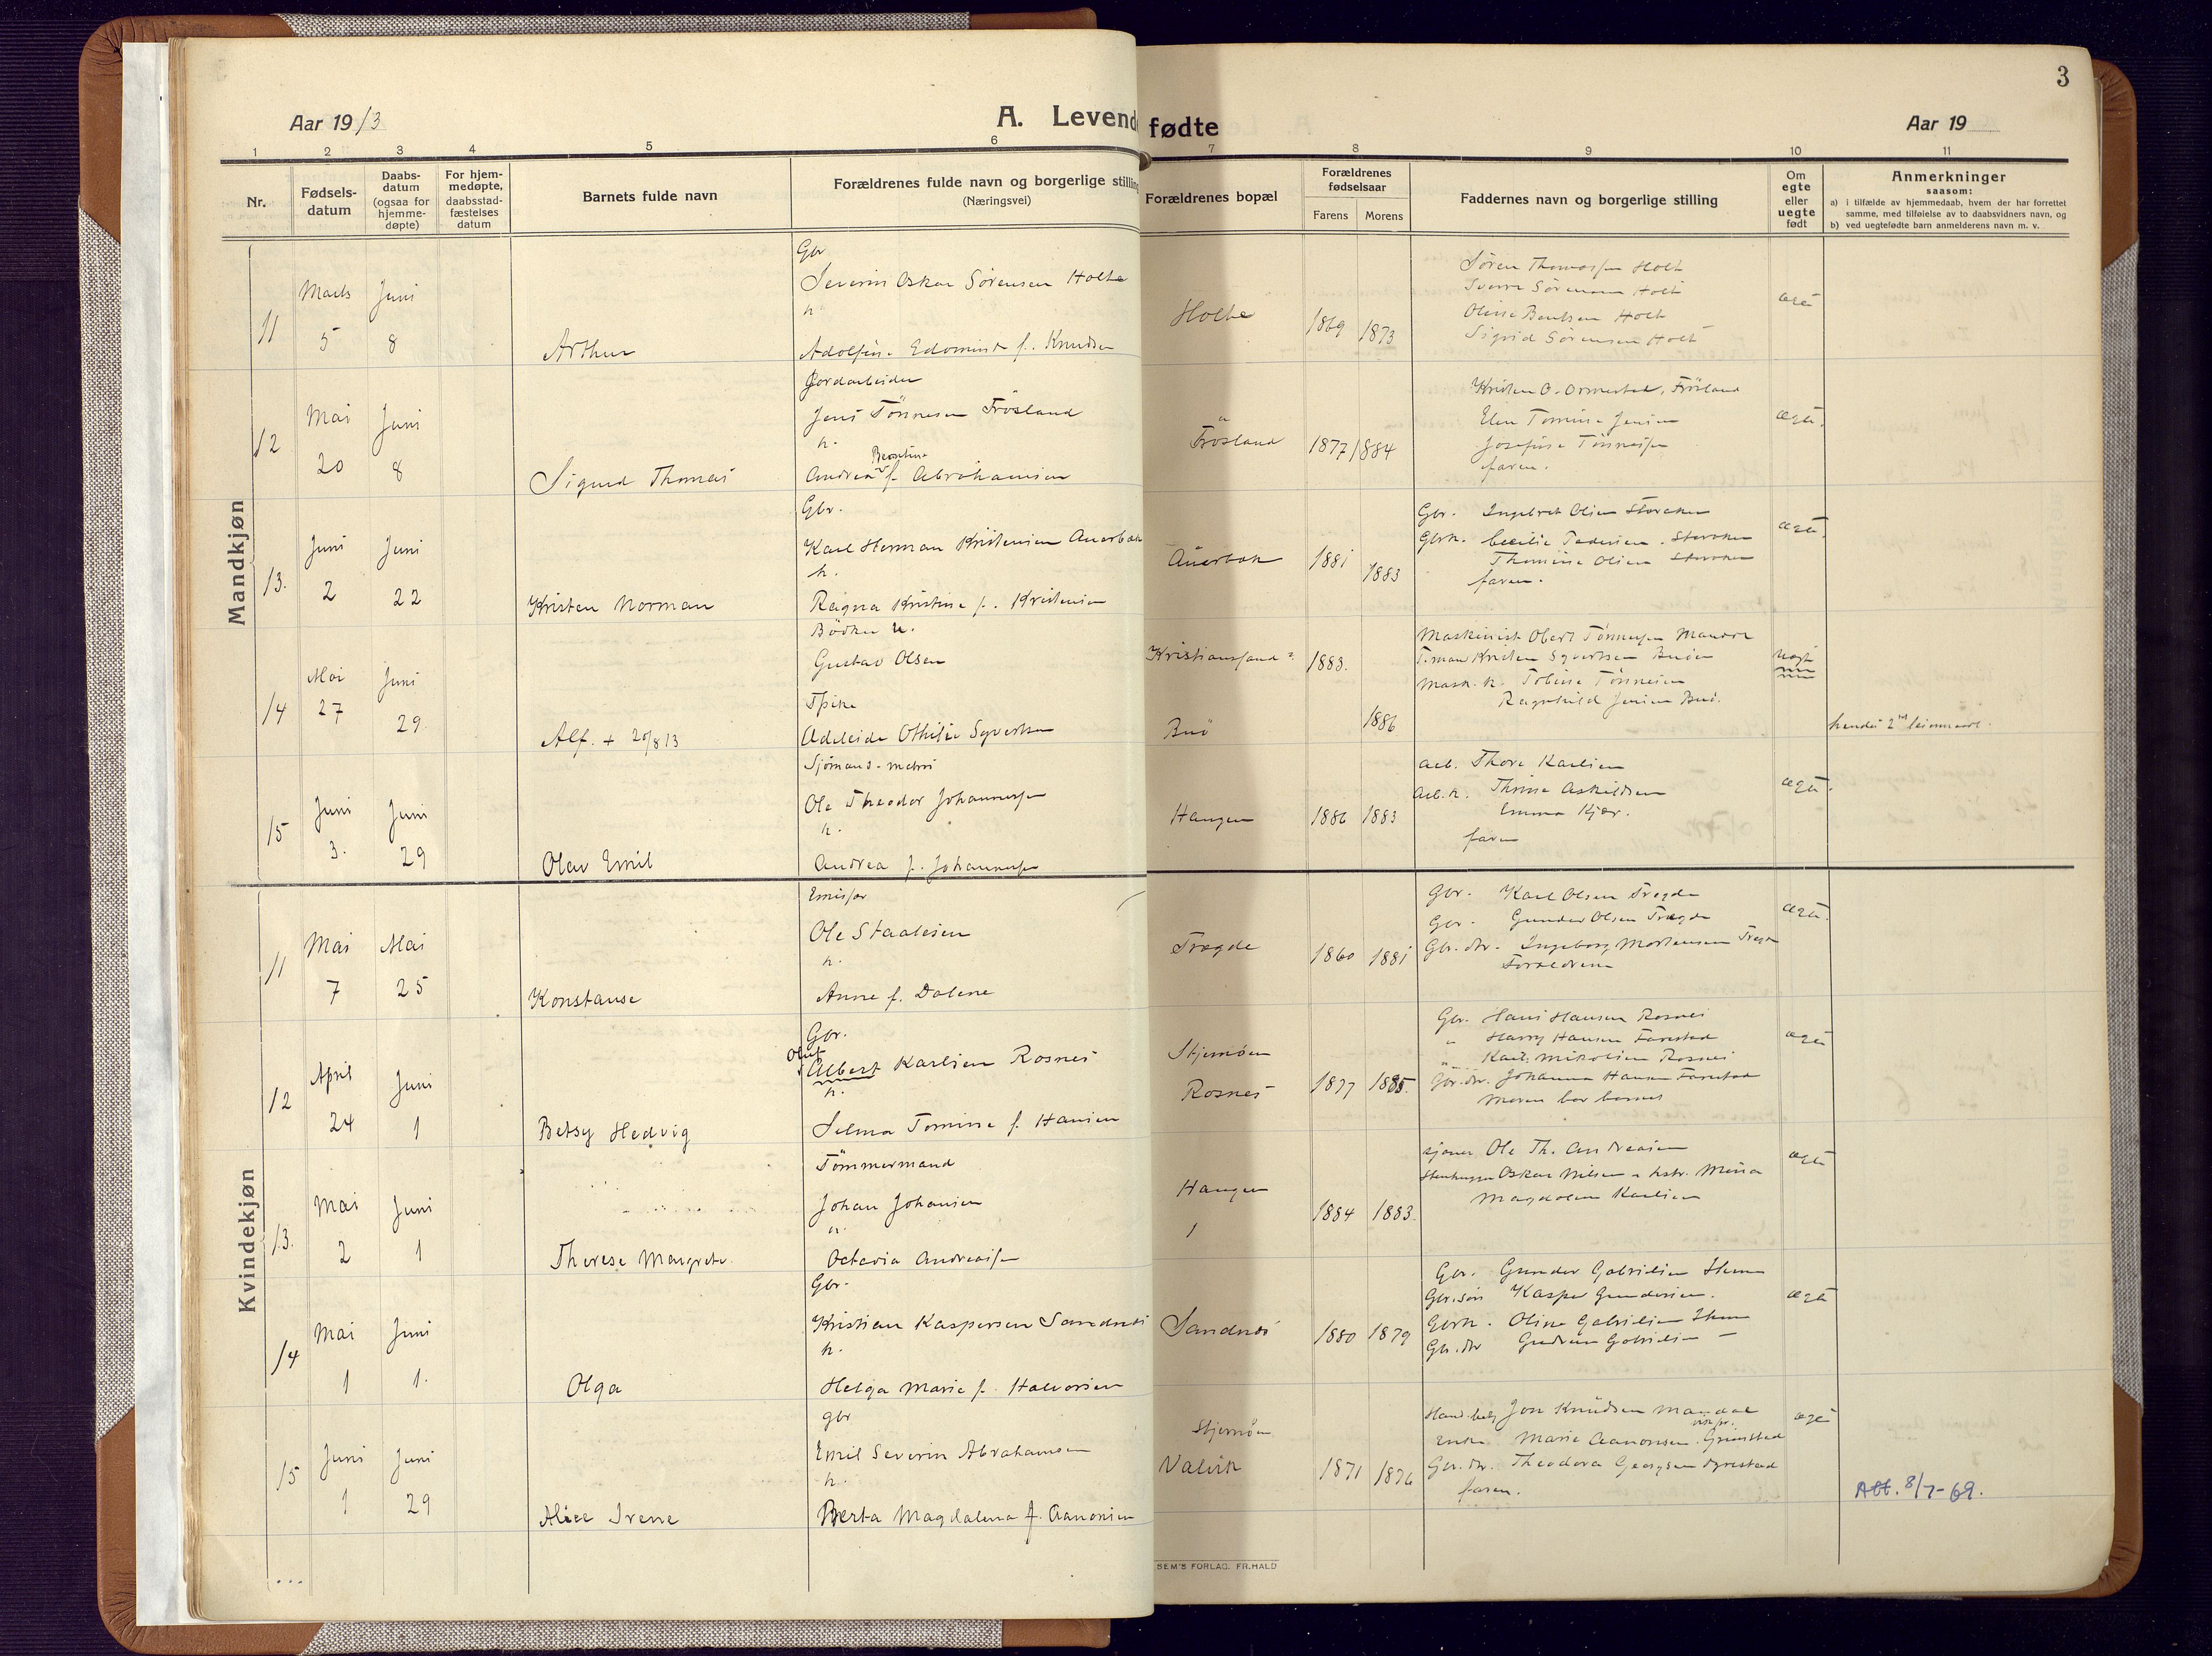 3
Aar 1913
A. Levende
fødte
Aar 19
1 2 3 4 5 6 7 8 9 10 11
Nr.
Fødsels-
datum
Daabs-
datum
(ogsaa for
hjemme-
døpte)
For hjem-
medøpte,
daabsstad-
fæstelses
datum
Barnets fulde navn
Forældrenes fulde navn og borgerlige stilling
(Næringsvei)
Forældrenes bopæl
Forældrenes
fødselsaar
Farens Morens
Faddernes navn og borgerlige stilling
Om
egte
eller
uegte
født
Anmerkninger
saasom:
a) i tilfælde av hjemmedaab, hvem der har forrettet
samme, med tilføielse av to daabsvidners navn, og
b) ved uegtefødte barn anmelderens navn m. v.
Mandkjøn
11
Marts 5
Juni 8
Arthur
Gbr
Severin Oskar Sørensen Holte
h.
Adolfine f. Knudsen
Holte
1869 1873
Søren Thomassen Holt
Sverre Sørensen Holt
Oline Bentsen Holt
Sigrid Sørensen Holt
ægte
12
Mai 20
Juni 8
Sigurd Thomas
Jordarbeider
Jens Tönnesen Frösland
h.
Andrea f. Abrahamsen
Frösland
1877 1884
Kristen O. Ormestad, Frösland
Elen Tomine Jensen
Josefine Tönnessen
faren.
ægte.
13.
Juni 2
Juni 22
Kristen Norman
Gbr.
Karl Herman Kristensen Auerbak
h.
Ragna Kristine f. Kristensen
Auerbak
1881 1883
Gbr. Ingebret Olsen Storaker
Gbrk. Cecilie Pedersen Storaker
Thomine Olsen Storaker
faren.
ægte
14
Mai 27
Juni 29
Alf. + 20/8 13
Bödker u.
Gustav Olsen
Pike
Adeleide Othilie Syvertsen
Kristianssand?
Buö
1883.
1886
Maskinist Obert Tönnessen Mandal
T.mand Kristen Syvertsen Buöen
Mask. k. Tobine Tönnesen
Ragnhild Jensen Buö.
Uegte
hendes 2det leiermaal.
15
Juni 3.
Juni 29
Olav Emil
Sjömand - matros
Ole Theodor Johannessen
h.
Andrea f. Johannessen
Haugen
1886 1883
Arb. Thore Karlsen
Arb. k. Thrine Askildsen
Emma Kjær.
faren
ægte.
Kvindekjøn
11
Mai 7
Mai 25
Konstanse
Emissær
Ole Staalesen
h.
Anne f. Dalene
Tregde
1860 1881
Gbr. Karl Olsen Tregde
Gbr. Gunder Olsen Tregde
Gbr. dtr. Ingeborg Mortensen Tregde
Forældrene
ægte.
12
April 24
Juni 1
Betsy Hedvig
Gbr.
Oluf
Albert Karlsen Rosnes
h.
Selma Tomine f. Hansen
Skjernöen
Rosnes
1877 1885.
Gbr. Hans Hansen Rosnes
" Harry Hansen Farestad
" Karl Mikalsen Rosnes
Gbr. dtr. Johanna Hansen Farestad
Moren bar barnet
ægte
13.
Mai 2
Juni 1
Therese Margrete
Tömmermand
Johan Johansen
h.
Octavia Andreassen
Haugen
1884 1883.
sjömand Ole Th. Andreassen
Stenhugger Oskar Nilsen u. hstr. Mina
Magdalene Karlsen
ægte
14
Mai 1
Juni 1.
Olga
Gbr.
Kristian Kaspersen Sandnes
h.
Helga Marie f. Halvorsen
Sandnes
1880 1879
Gbr. Gunder Gabrielsen
Gbr. sön Kasper Gundersen.
Gbrk. Oline Gabrielsen
Gbr. dtr Gudrun Gabrielsen —
ægte
15
Juni 1
Juni 29
Alice Irene
gbr
Emil Severin Abrahamsen
h.
Berta Magdalena f. Aanonsen
Skjernöen
Valvik
1871 1876
Hand.bet. Jon Knudsen Mandal
Enke Marie Aanonsen Grimstad
Gbr. dtr. Theodora Georgsen Dyrestad
faren.
ægte
Att. 8/7-69.
SEM'S FORLAG. FR.HALD